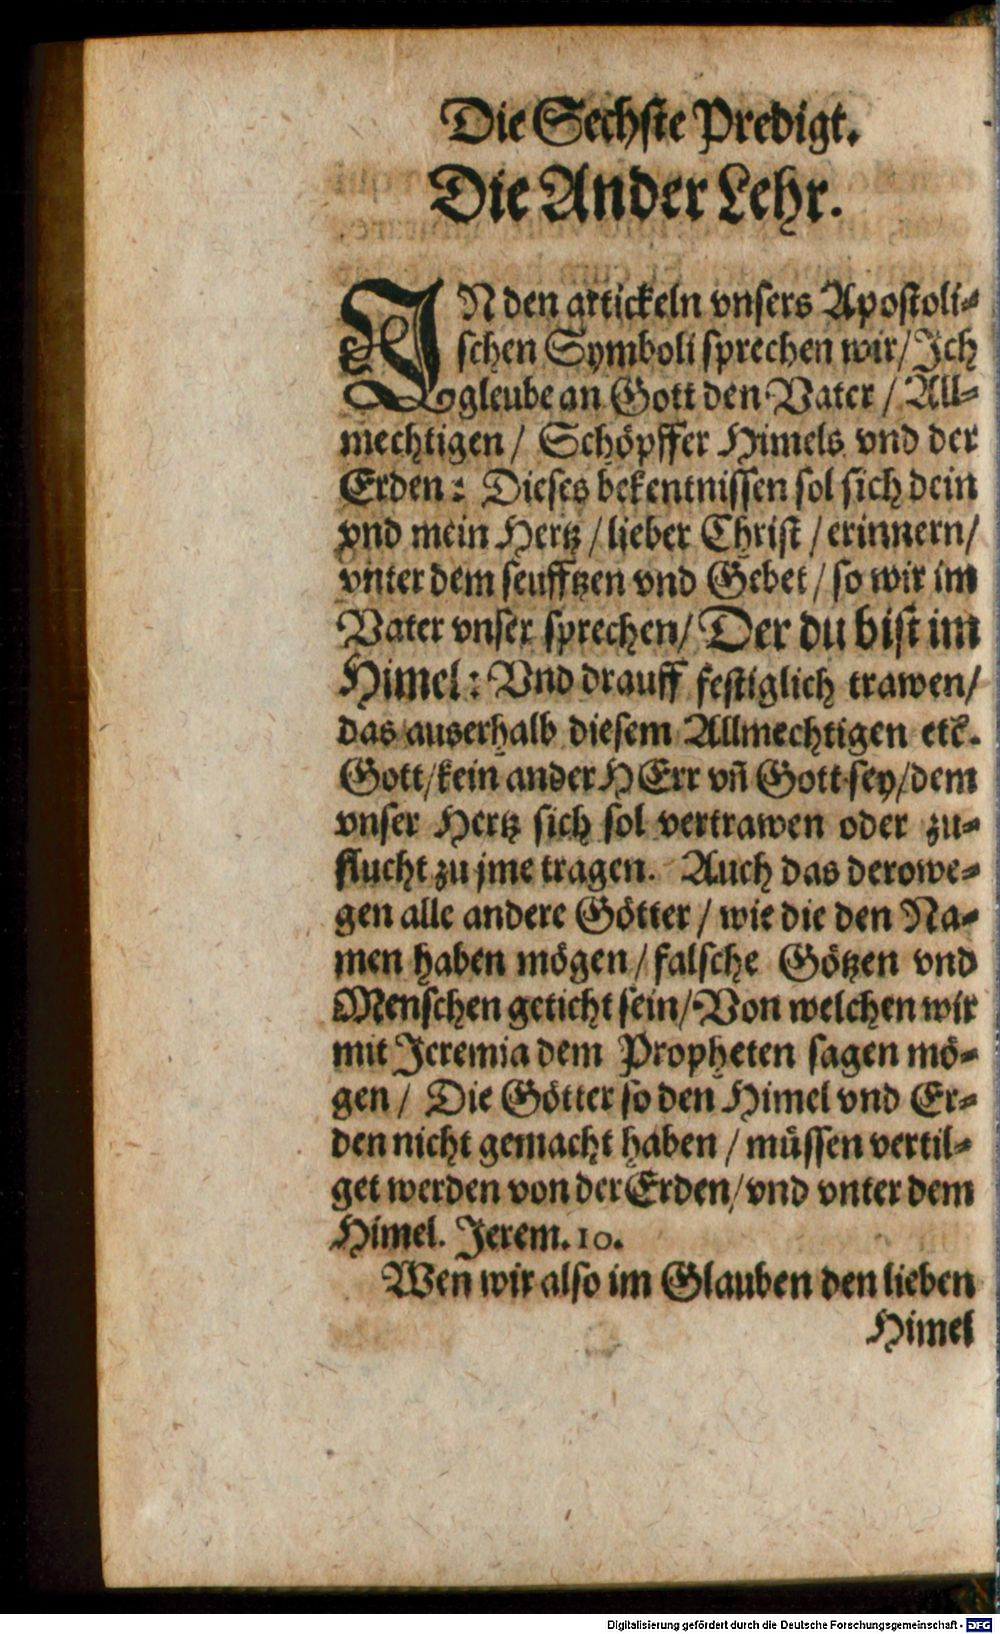 Die Sechste Predigt.
Die Ander Lehr.
IN den artickeln vnsers Apostoli-
schen Symboli sprechen wir/ Ich
gleube an Gott den Vater / All-
mechtigen / Schöpffer Himels vnd der
Erden: Dieses bekentnissen sol sich dein
vnd mein Hertz / lieber Christ / erinnern/
vnter dem seufftzen vnd Gebet / so wir im
Vater vnser sprechen/ Der du bist im
Himel: Vnd drauff festiglich trawen/
das auserhalb diesem Allmechtigen etc.
Gott/kein ander HErr vñ Gott sey/dem
vnser Hertz sich sol vertrawen oder zu-
flucht zu jme tragen. Auch das derowe-
gen alle andere Götter / wie die den Na-
men haben mögen / falsche Götzen vnd
Menschen geticht sein/ Von welchen wir
mit Jeremia dem Propheten sagen mö-
gen / Die Götter so den Himel vnd Er-
den nicht gemacht haben / müssen vertil-
get werden von der Erden/ vnd vnter dem
Himel. Jerem. 10.
Wen wir also im Glauben den lieben
Himel
Digitalisierung gefördert durch die Deutsche Forschungsgemeinschaft - DFG